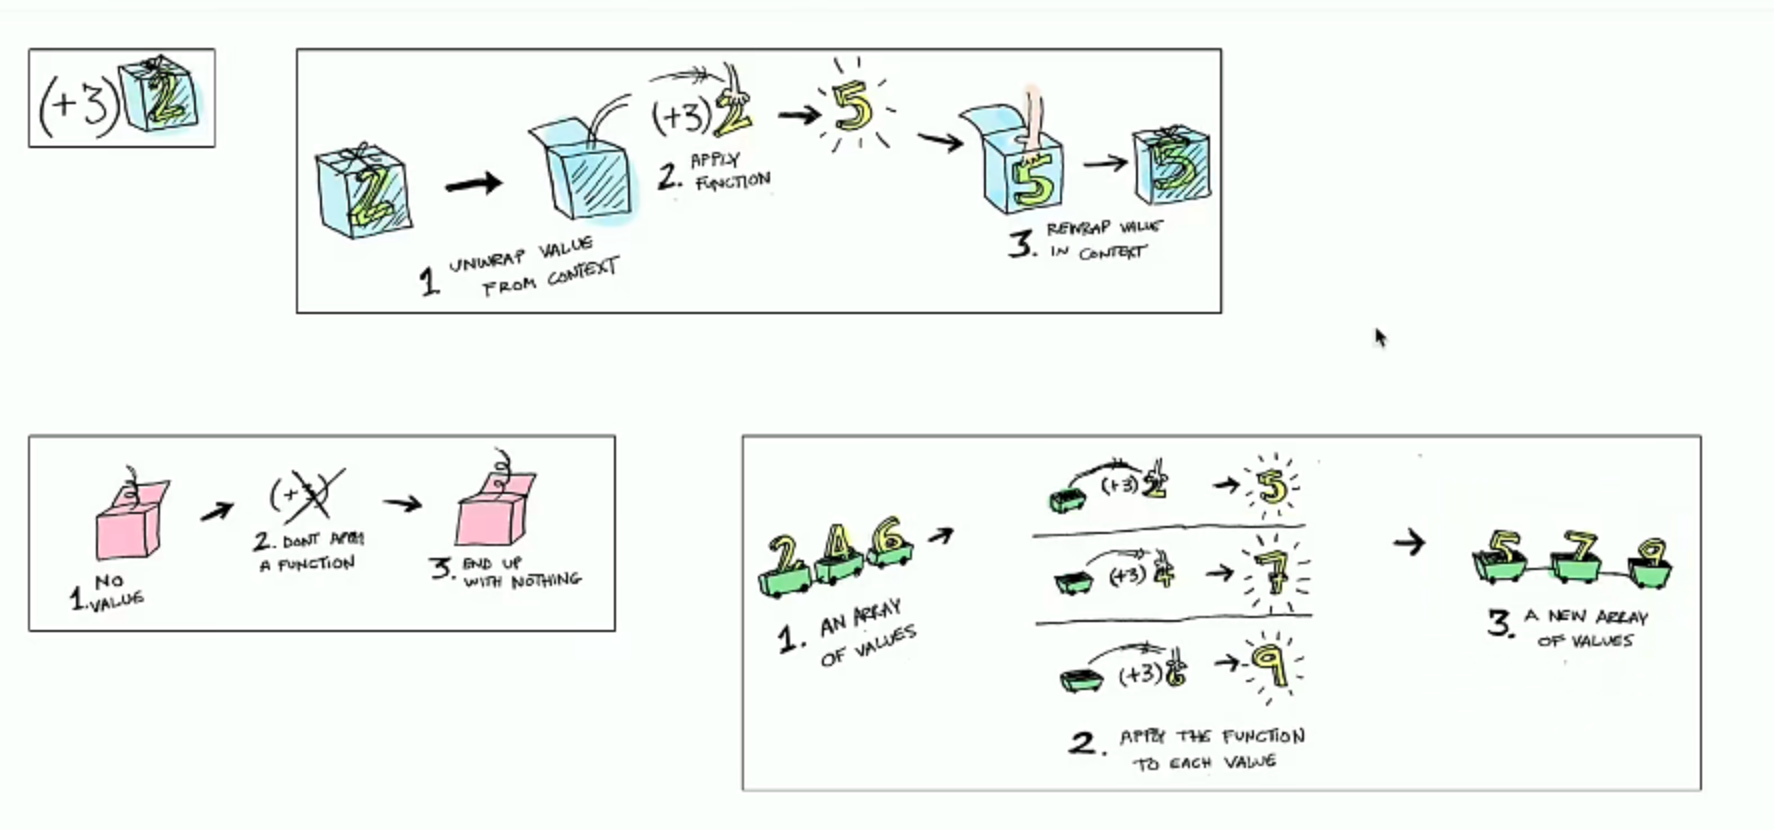 (+3) 2
2
1. UNWRAP VALUE
FROM CONTEXT
(+3) 2
2. APPLY
FUNCTION
5
5
3. REWRAP VALUE
IN CONTEXT
5
1. NO
VALUE
(+3)
2. DONT APPLY
A FUNCTION
3. END UP
WITH NOTHING
2 4 6
1. AN ARRAY
OF VALUES
(+3) 2 5
(+3) 4 7
(+3) 6 9
2. APPLY THE FUNCTION
TO EACH VALUE
5 7 9
3. A NEW ARRAY
OF VALUES